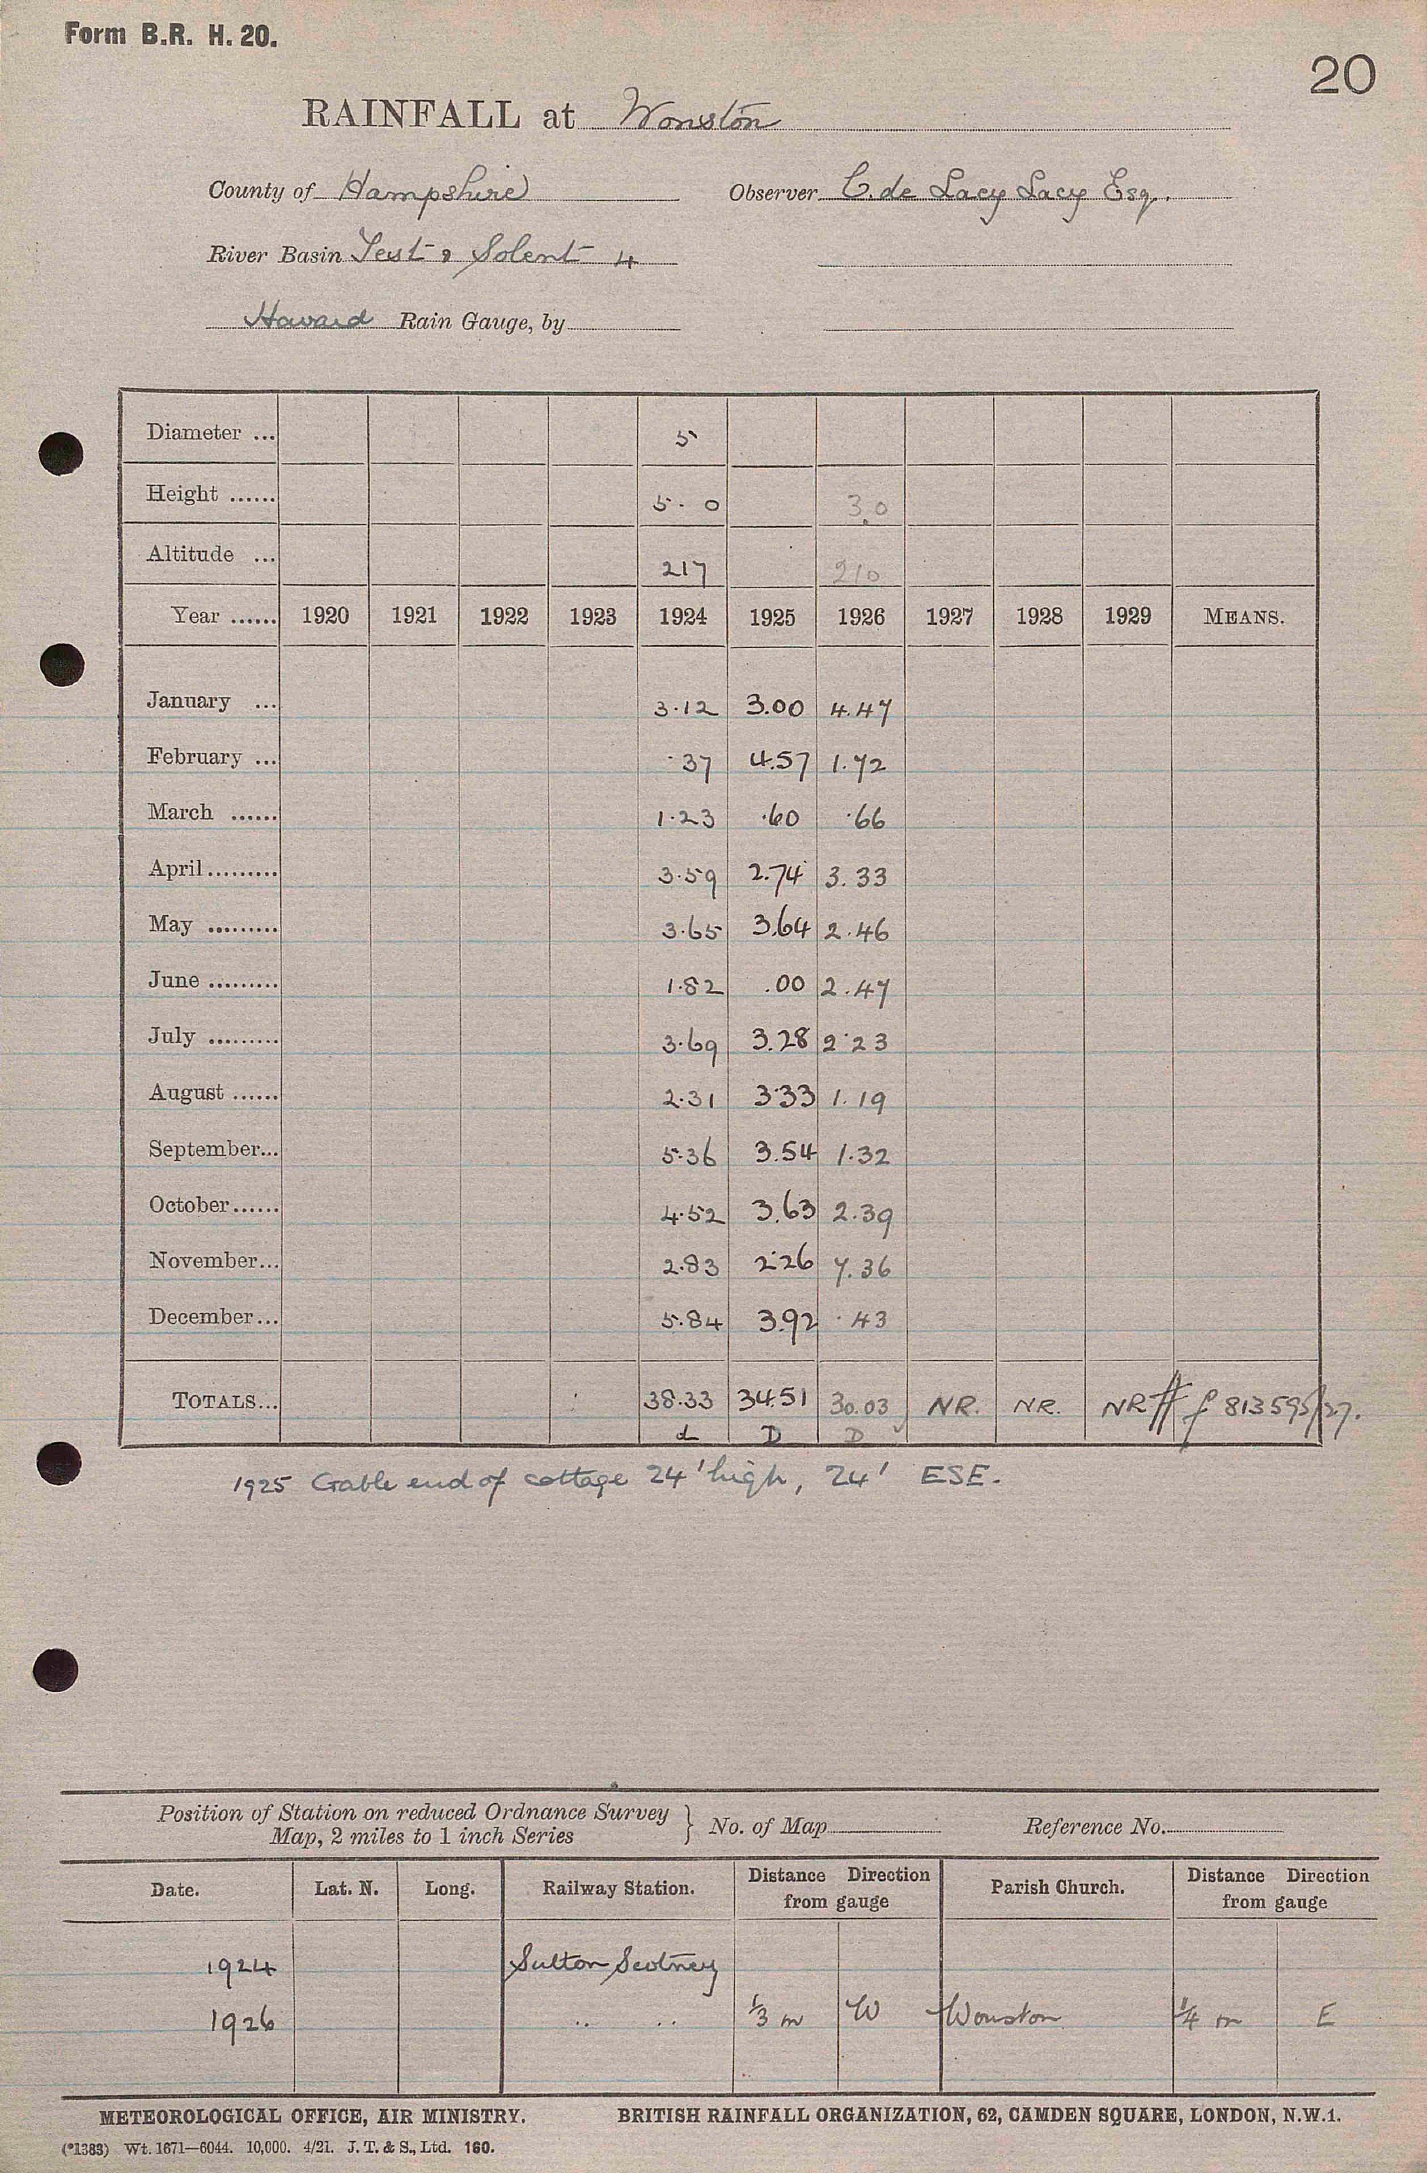 Form B.R. H. 20.
20
RAINFALL at Wonston
County of Hampshire Observer C. de Lacy Lacy Esq.
River Basin Test & Solent 4
Howard Rain Gauge, by
Diameter ... 5
Height ...... 5 . 0 3.0
Altitude ... 217 210
Year ...... 1920 1921 1922 1923 1924 1925 1926 1927 1928 1929 MEANS.
January ... 3.12 3.00 4.47
February ... .37 4.57 1.72
March ...... 1.23 .60 .66
April ......... 3.59 2.74 3.33
May ......... 3.65 3.64 2.46
June ......... 1.82 .00 2.47
July ......... 3.69 3.28 2.23
August ...... 2.31 3.33 1.19
September... 5.36 3.54 1.32
October ...... 4.52 3.63 2.39
November... 2.83 2.26 7.36
December... 5.84 3.92 .43
TOTALS... 38.33 34.51 30.03 NR. NR. NR 813595/27.
d D D
1925 Gable end of cottage 24' high, 24' ESE.
Position of Station on reduced Ordnance Survey Map, 2 miles to 1 inch Series } No. of Map Reference No.
Date. Lat. N. Long. Railway Station. Distance Direction from gauge Parish Church. Distance Direction from gauge
1924 Sutton Scotney
1926 " " 1/3 m W Wonston 1/4 m E
METEOROLOGICAL OFFICE, AIR MINISTRY. BRITISH RAINFALL ORGANIZATION, 62, CAMDEN SQUARE, LONDON, N.W.1.
(*1383) Wt. 1671—6044. 10,000. 4/21. J. T. & S., Ltd. 160.